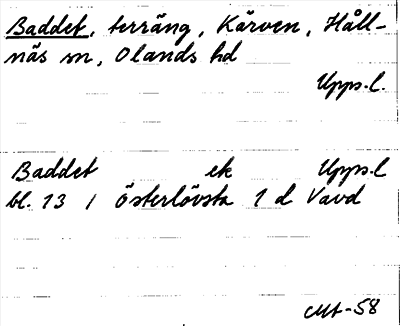 Baddet, terräng, Kärven, Håll-
näs sn, Olands hd
Upps.l.
Baddet ek Upps.l
bl. 13 / Österlövsta 1 d Vavd
Mt-58